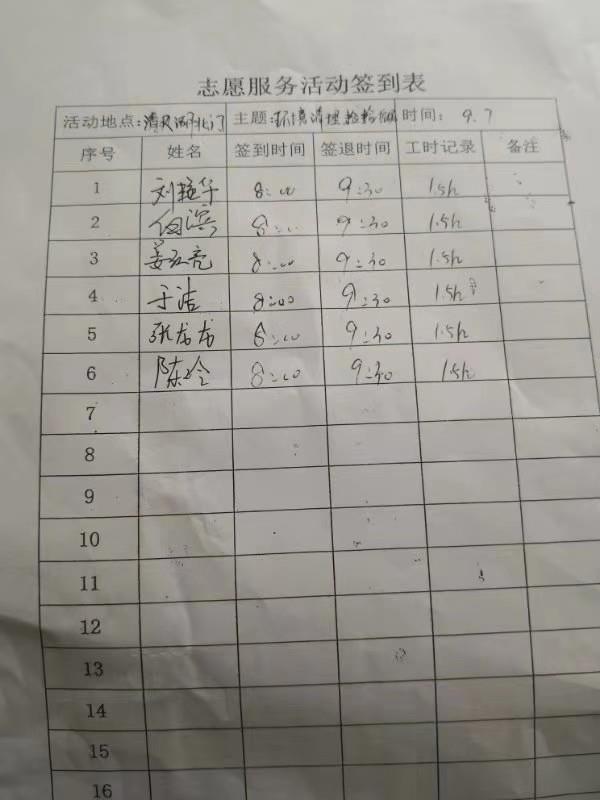 志愿服务活动签到表
活动地点: 北门 主题: 环境清理捡 时间: 9.7
序号 姓名 签到时间 签退时间 工时记录 备注
1 刘艳华 8:00 9:30 1.5h
2 8:00 9:30 1.5h
3 姜红亮 8:00 9:30 1.5h
4 于洁 8:00 9:30 1.5h
5 张龙龙 8:00 9:30 1.5h
6 陈玲 8:00 9:30 1.5h
7
8
9
10
11
12
13
14
15
16